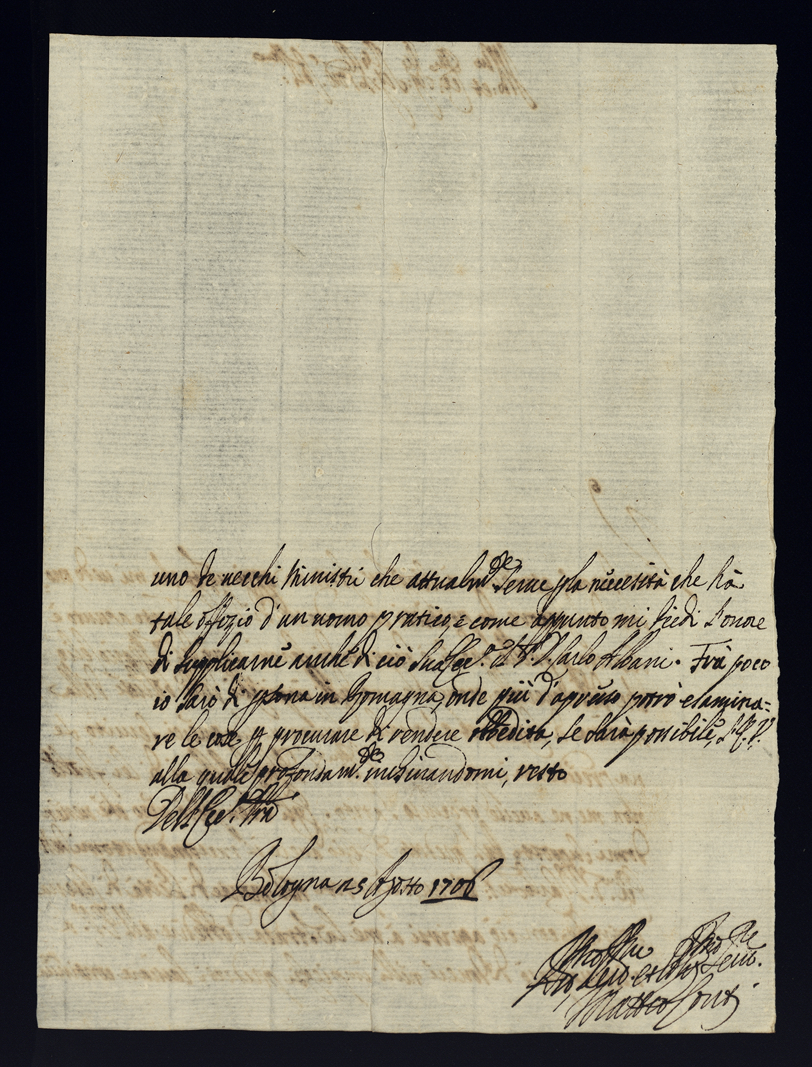 uno de vecchi Ministri che attualm.te serve p la necessità che hà
tale offizio d'un uomo pratico, e come appunto mi diedi l'onore
di supplicarne anche di ciò Sua Ecc.a il S.r D. Carlo Albani. Frà poco
io sarò di psona in Romagna, onde più d'apresso potrò esamina=
re le cose p procurare di rendere obbedita, se sarà possibile, l'E.V.
alla quale profondam.te inchinandomi, resto
Dell'Ecc.a V.ra
Bologna 25 Agosto 1706
Matteo Conti